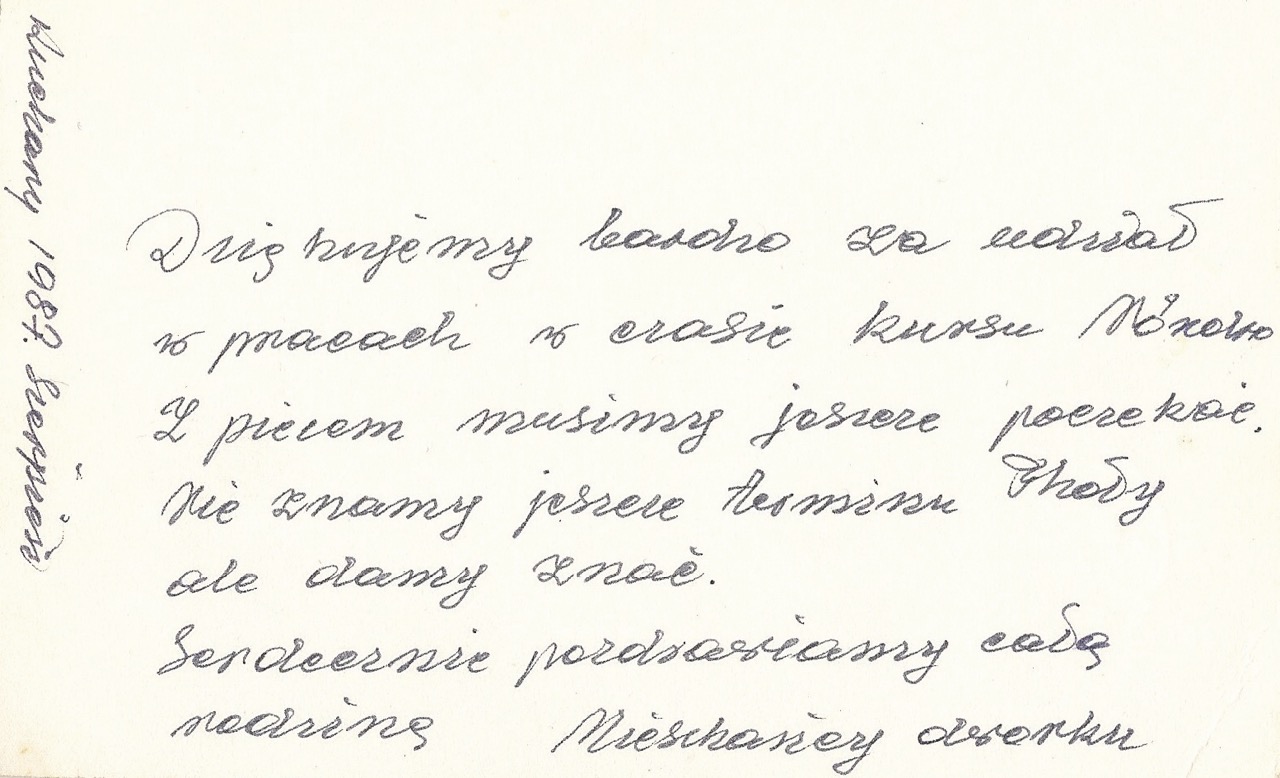 Dziękujemy bardzo za udział
w pracach w czasie kursu
Z piecem musimy jeszcze poczekać.
Nie znamy jeszcze terminu
ale damy znać.
Serdecznie pozdrawiamy całą
rodzinę Mieszkańcy dworku
1987. Sierpień